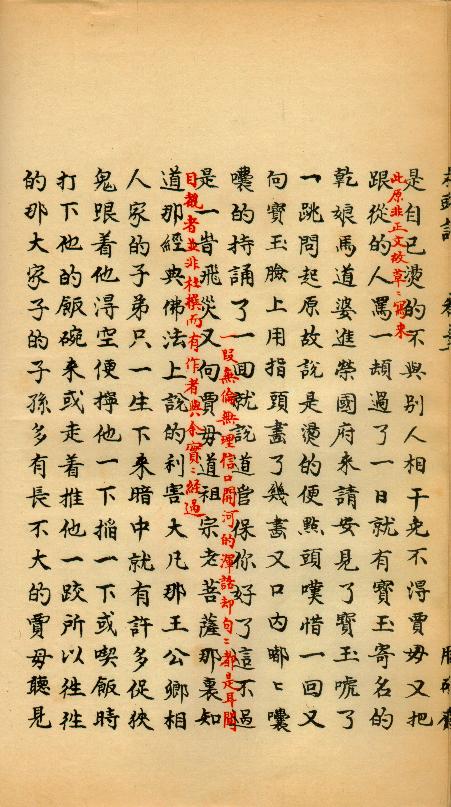 是自己燙的不與別人相干免不得賈母又把
跟從的人罵一頓過了一日就有寶玉寄名的
此原非正文故草〻寫來
乾娘馬道婆進榮國府來請安見了寶玉唬了
一跳問起原故說是燙的便點頭嘆惜一回又
向寶玉臉上用指頭畫了幾畫又口內嘟〻囔
囔的持誦了一回就說道管保你好了這不過
一段無倫無理信口開河的渾話却句〻都是耳聞
是一皆飛災又向賈母道祖宗老菩薩那裏知
目覩者並非杜撰而有作者與余實〻經過
道那經典佛法上說的利害大凡那王公卿相
人家的子弟只一生下來暗中就有許多促狹
鬼跟着他得空便擰他一下掐一下或喫飯時
打下他的飯碗來或走着推他一跤所以往往
的那大家子的子孫多有長不大的賈母聽見